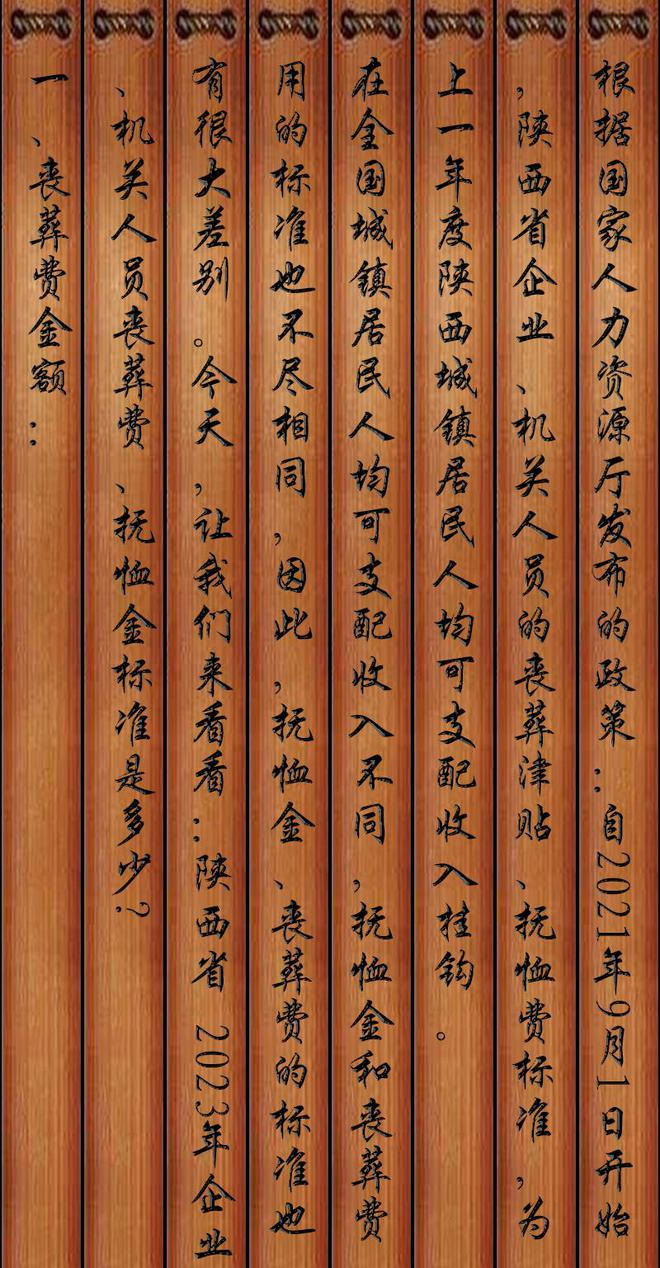 根据国家人力资源厅发布的政策：自2021年9月1日开始
，陕西省企业、机关人员的丧葬津贴、抚恤费标准，为
上一年度陕西城镇居民人均可支配收入挂钩。
在全国城镇居民人均可支配收入不同，抚恤金和丧葬费
用的标准也不尽相同，因此，抚恤金、丧葬费的标准也
有很大差别。今天，让我们来看看：陕西省 2023年企业
、机关人员丧葬费、抚恤金标准是多少？
一、丧葬费金额：